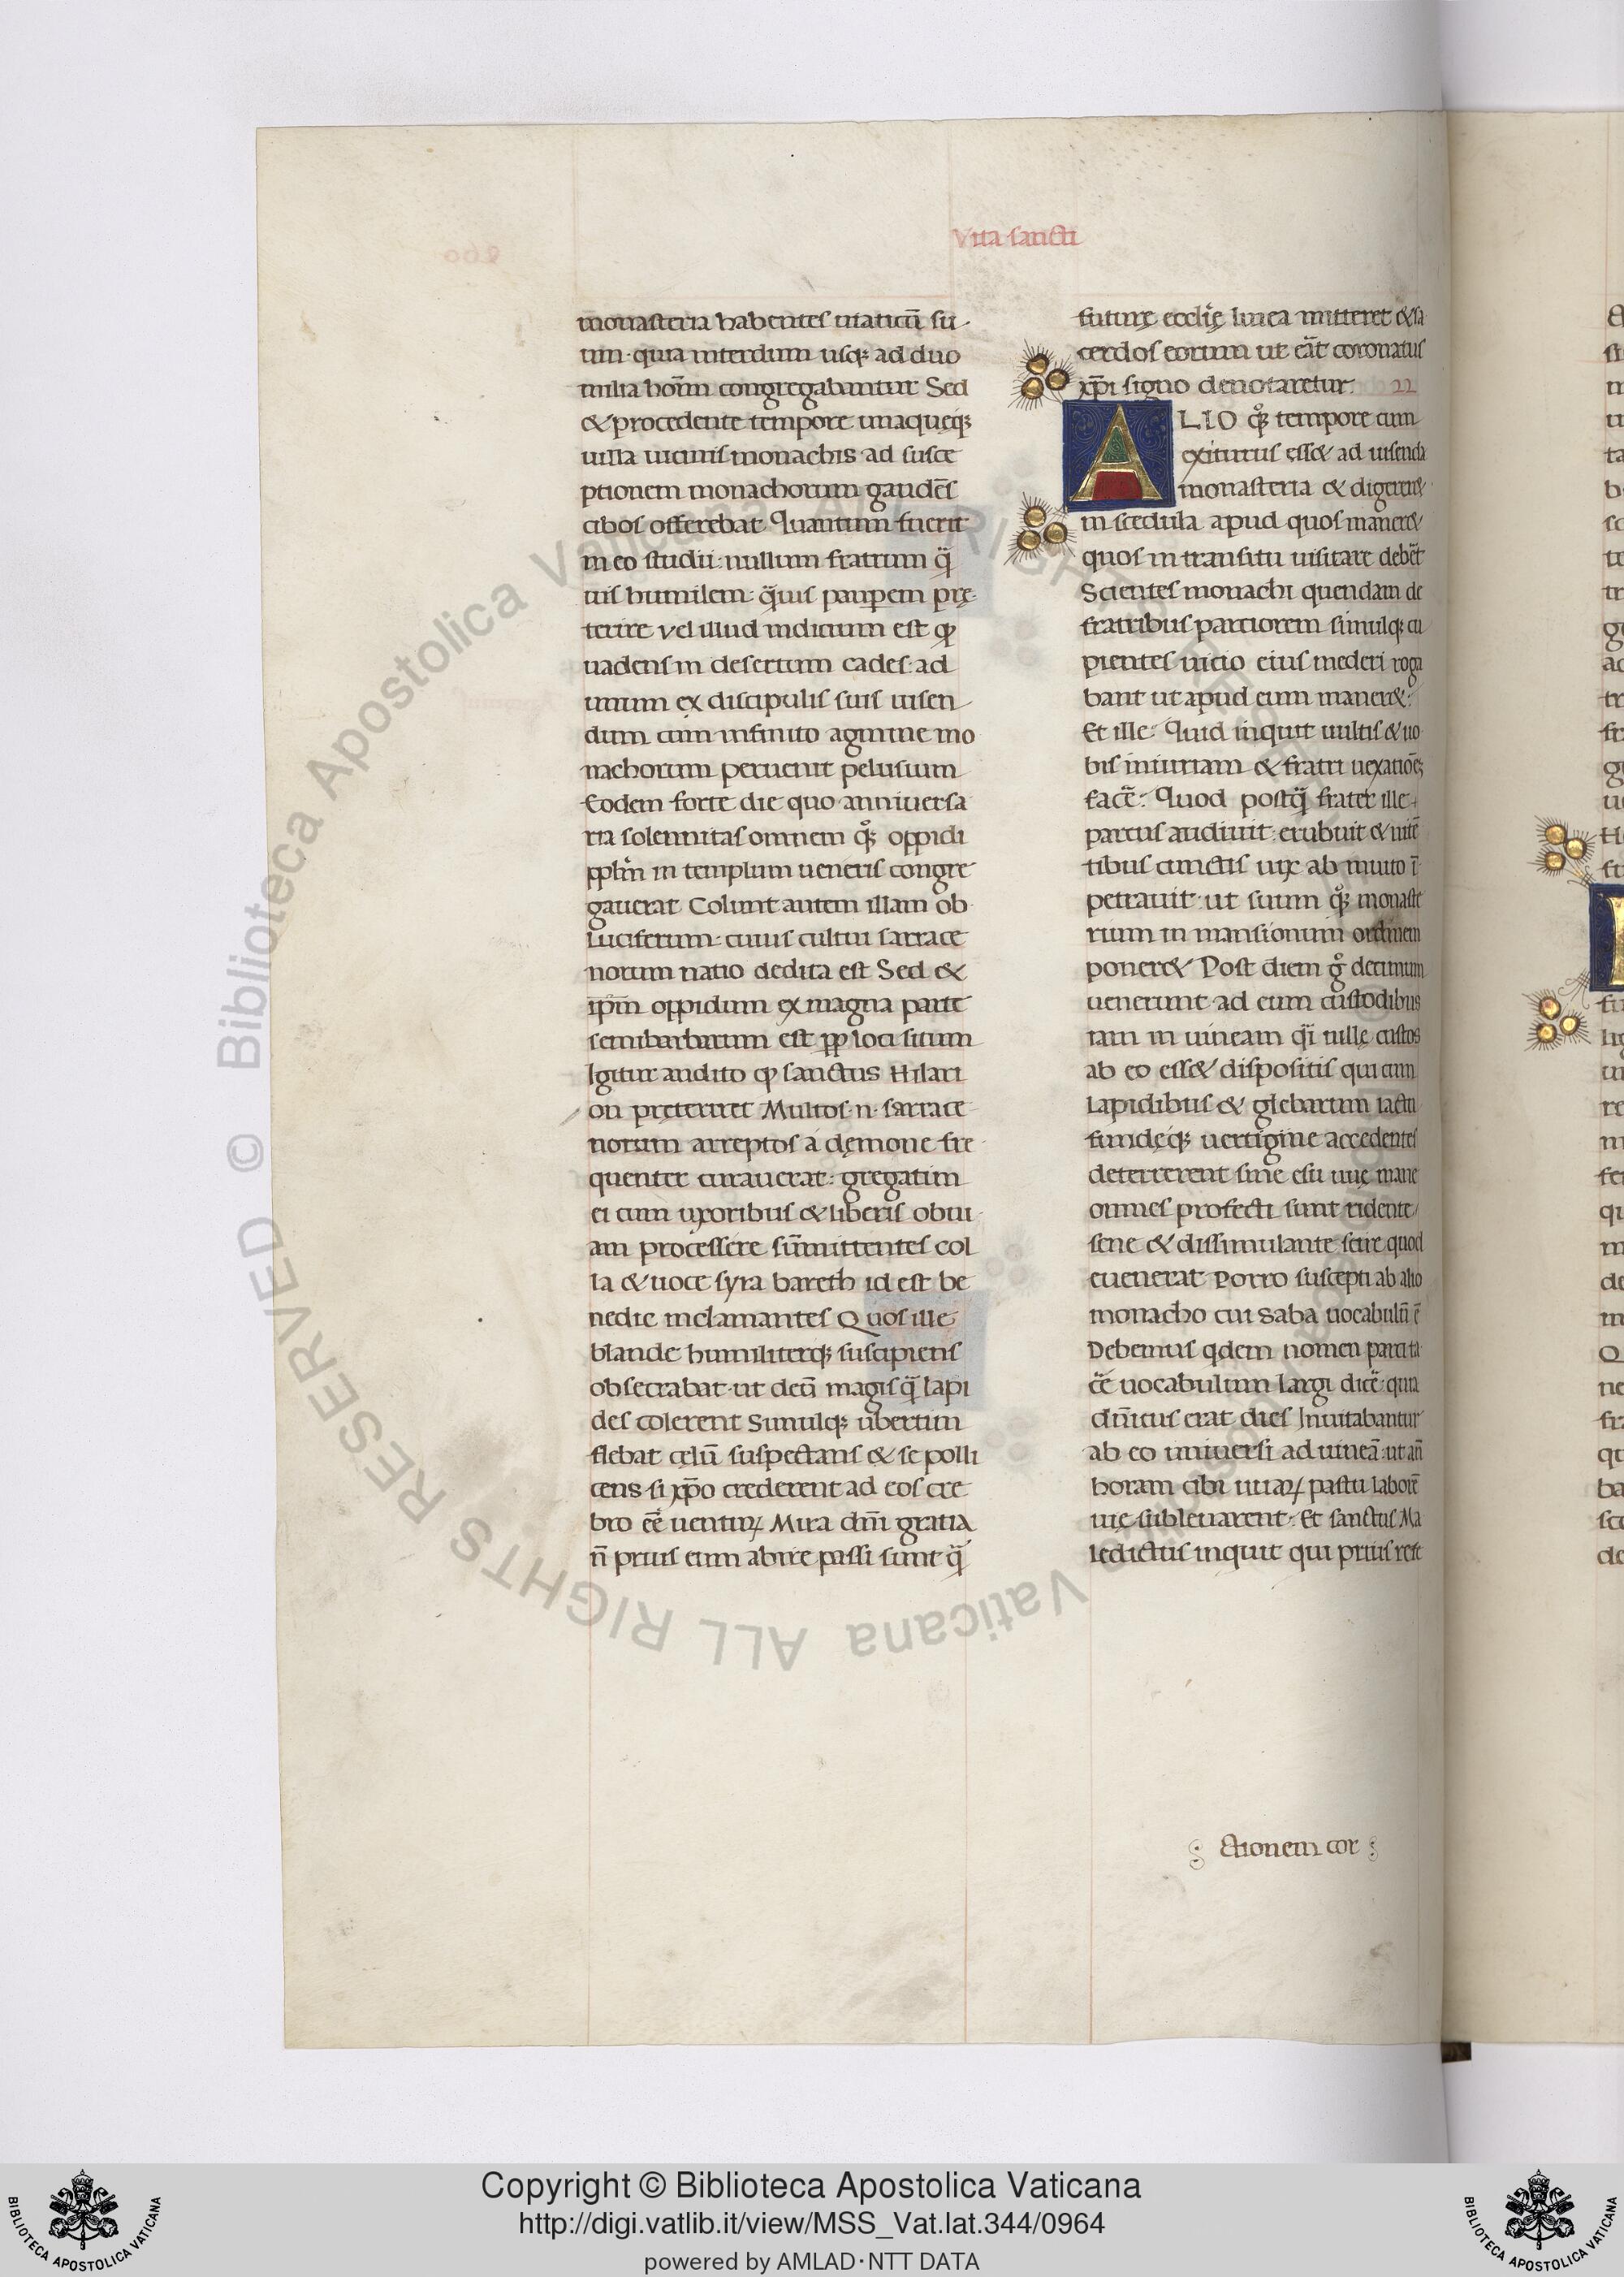 Vita sancti
monasteria habentes uiaticū su
um· quia interdum usq; ad duo
milia hom̄m congregabantur Sed
& procedente tempore unaqueq;
uilla uicinis monachis ad susce
ptionem monachorum gaudēs
cibos offerebat Quantum fuerit
in eo studii· nullum fratrum q̄
uis humilem· q̄uis pauꝑem prę
terire vel illud indicium est ꝙ
uadens in desertum cades· ad
unum ex discipulis suis uisen
dum cum infinito agmine mo
nachorum peruenit pelusium
Eodem forte die quo anniuersa
ria solennitas omnem qͦ; oppidi
pplm̄ in templum ueneris congre
gauerat Colunt autem illam ob
Luciferum· cuius cultui sarrace
norum natio dedita est Sed &
ipm̄ oppidum ex magna parte
semibarbarum est pp loci situm
Igitur audito ꝙ sanctus Hilari
on pręteriret Multos· n· sarrace
norum arreptos a dęmone fre
quenter curauerat: gregatim
ei cum uxoribus & liberis obui
am processere sūmittentes col
la & uoce syra bareth id est be
nedic inclamantes Quos ille
blande humiliterq; suscipiens
obsecrabat· ut deū magis q̄ lapi
des colerent Simulq; ubertim
flebat cęlū suspectans & se polli
cens· si xp̄o crederent ad eos cre
bro eē uenturꝝ Mira dm̄i gratia
n̄ prius eum abire passi sunt q̄
futurę ecclię linea mitteret & sa
cerdos eorum ut eāt coronatus
xp̄i signo denotaretur· 22
ALIO qͦ; tempore cum
exiturus ess& ad uisenda
monasteria & digerer&
in scedula apud quos maner&
quos in transitu uisitare debēt
Scientes monachi quendam de
fratribus parciorem simulq; cu
pientes uicio eius mederi roga
bant ut apud eum maner&:
Et ille: Quid inquit uultis & uo
bis iniuriam & fratri uexatiōes
facē: Quod postq̄ frater ille
parcus audiuit· erubuit & nitē
tibus cunctis uix ab inuito ī
petrauit· ut suum qͦ; monaste
rium in mansionum ordinem
poner& Post diem gͦ decimum
uenerunt ad eum custodibus
iam in uineam q̄i uillę custos
ab eo ess& dispositis qui cum
Lapidibus & glebarum iactu
fundęq; uertigine accedentes
deterrerent sine esu uuę mane
omnes profecti sunt ridente
sene & dissimulante scire quod
euenerat Porro suscepti ab alio
monacho cui saba uocabulū ē
Debemus qdem nomen parci ta
cē uocabulum largi dicē· quia
dn̄icus erat dies Inuitabantur
ab eo uniuersi ad uineā· ut añ
horam cibi uuarꝝ pastu laborē
uię subleuarent· Et sanctus Ma
ledictus inquit qui prius refe
ctionem cor
Copyright © Biblioteca Apostolica Vaticana
http://digi.vatlib.it/view/MSS_Vat.lat.344/0964
powered by AMLAD·NTT DATA
BIBLIOTECA APOSTOLICA VATICANA
BIBLIOTECA APOSTOLICA VATICANA
© Biblioteca Apostolica Vaticana ALL RIGHTS RESERVED